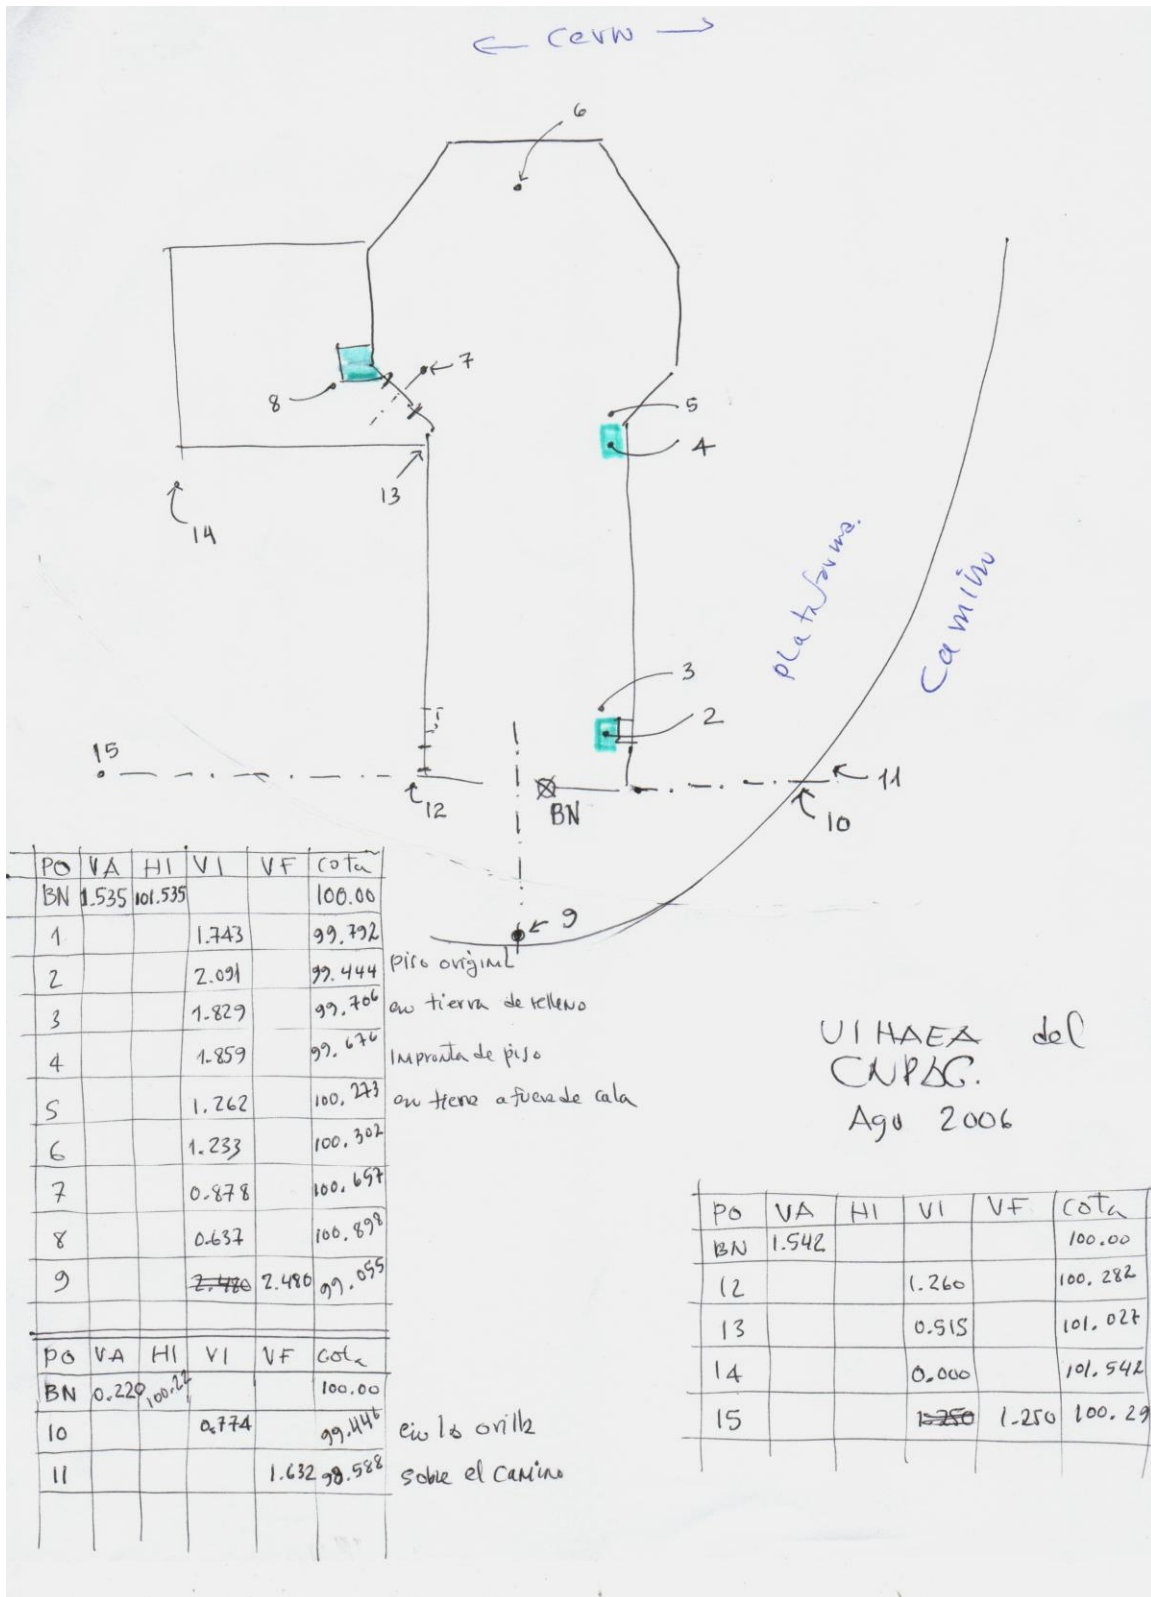 ← cerro →
6
7
8
5
4
13
14
plataforma.
Camino
3
2
15
11
12
BN
10
9
PO VA HI VI VF Cota
BN 1.535 101.535 100.00
1 1.743 99.792
2 2.091 99.444 piso original
3 1.829 99.706 en tierra de relleno
4 1.859 99.676 Impronta de piso
5 1.262 100.273 en tierra afuera de cala
6 1.233 100.302
7 0.878 100.657
8 0.637 100.898
9 2.480 2.480 99.055
PO VA HI VI VF Cota
BN 0.220 100.22 100.00
10 0.774 99.446 en la orilla
11 1.632 98.588 sobre el camino
UIHAEA del
CNPDG.
Ago 2006
PO VA HI VI VF Cota
BN 1.542 100.00
12 1.260 100.282
13 0.515 101.027
14 0.000 101.542
15 1.250 1.250 100.29